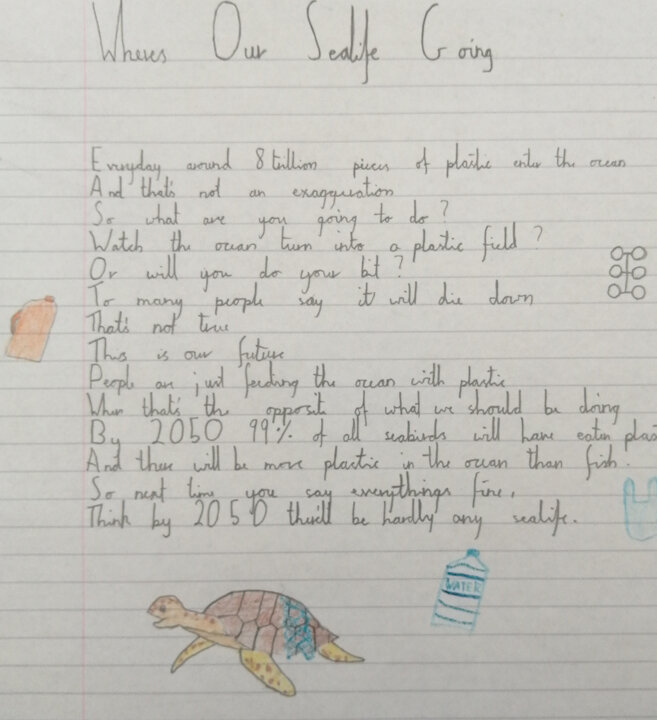 Wheres Our Sealife Going
Everyday around 8 trillion pieces of plastic enter the ocean
And that's not an exaggeration
So what are you going to do?
Watch the ocean turn into a plastic field?
Or will you do your bit?
To many people say it will die down
That's not true
This is our future
People are just feeding the ocean with plastic
When that's the opposit of what we should be doing
By 2050 99% of all seabirds will have eaten plas
And there will be more plactic in the ocean than fish.
So next time you say everythings fine,
Think by 2050 there'll be hardly any sealife.
WATER